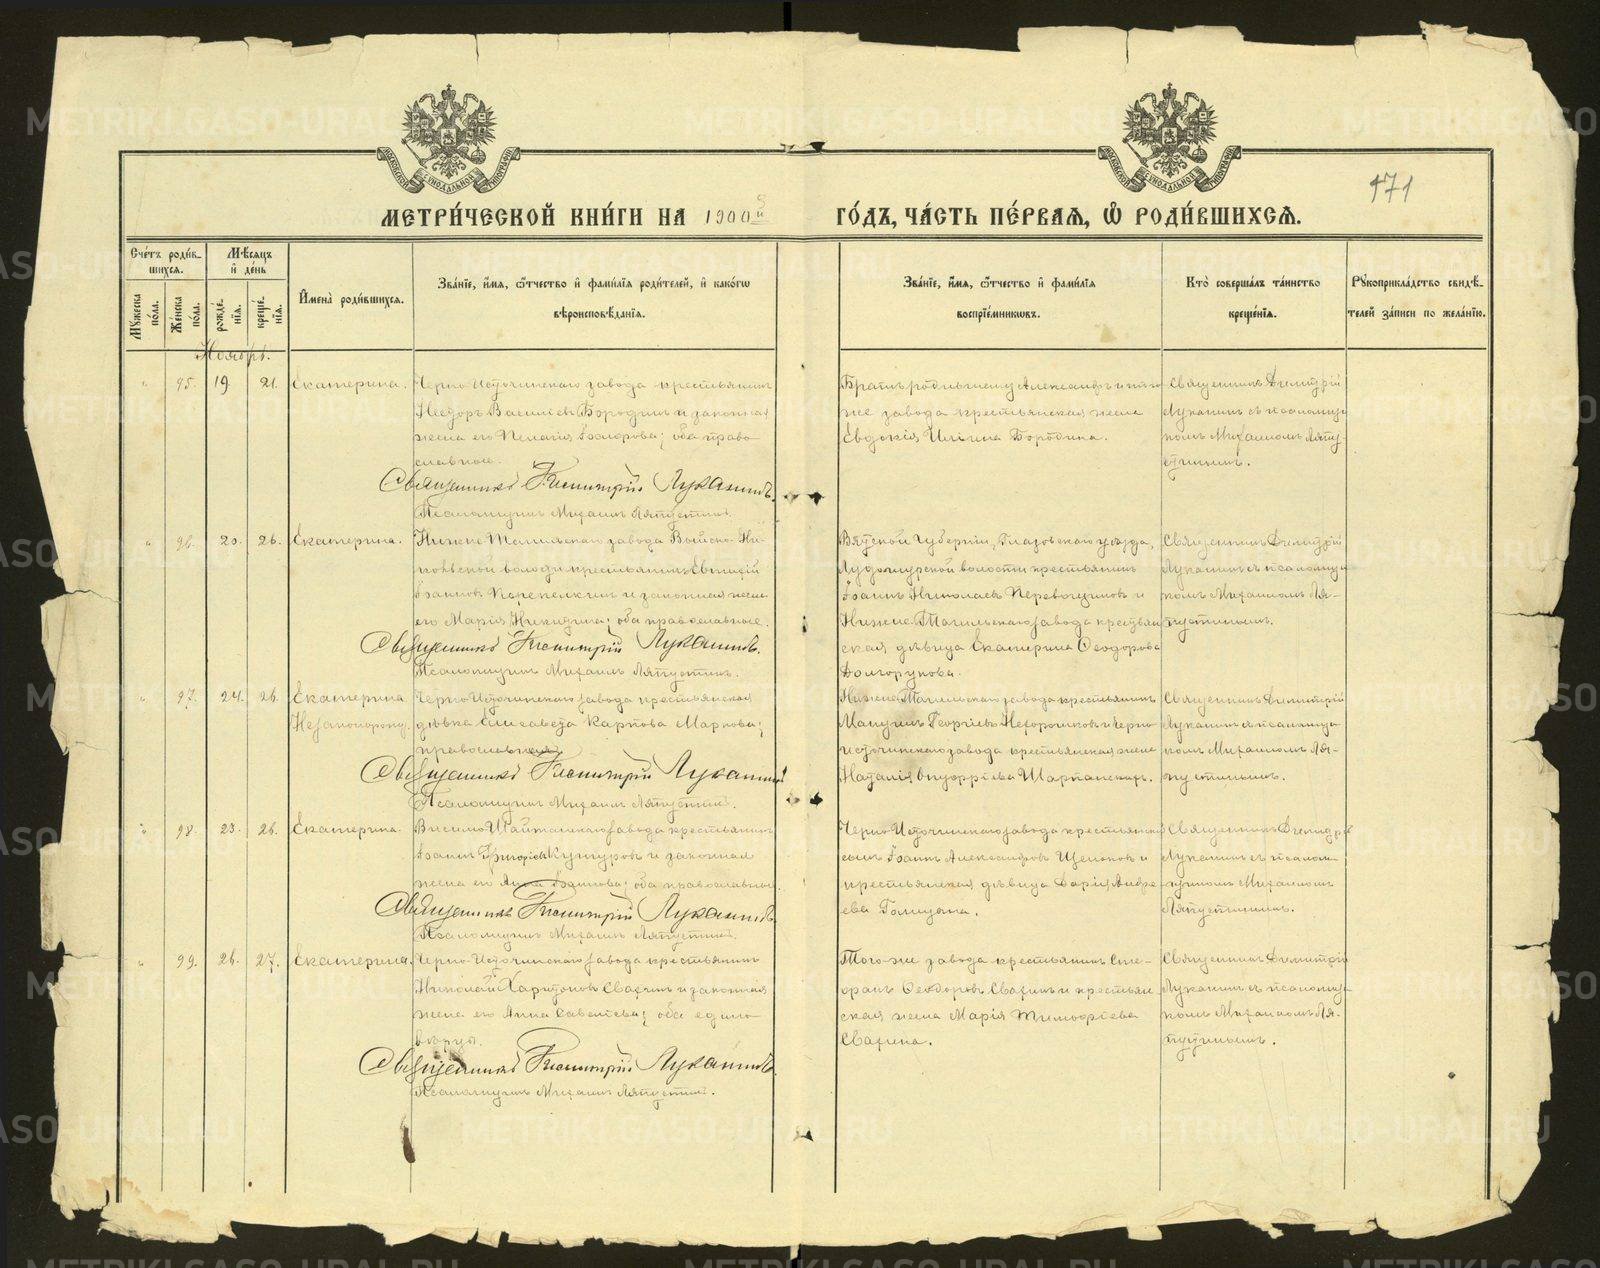 171
МЕТРИ́ЧЕСКОЙ КНИ́ГИ НА 1900 й ГО́ДЪ, ЧА́СТЬ ПЕ́РВАЯ, Ѿ РОДИ́ВШИХСЯ.
МОСКОВСКОЙ СѴНОДАЛЬНОЙ ТИПОГРАФІИ
МОСКОВСКОЙ СѴНОДАЛЬНОЙ ТИПОГРАФІИ
Сче́тъ роди́в-
шихся.
Мѣ́сяцъ
и҆ де́нь
Мꙋ́жеска по́ла.
Же́нска по́ла.
рожде́-нїя.
креще́-нїя.
И҆мена̀ роди́вшихся.
Зва́нїе, и҆́мя, ѻ҆́тчество и҆ фами́лїя роди́телей, и҆ како́гѡ
вѣроисповѣ́данїя.
Зва́нїе, и҆́мя, ѻ҆́тчество и҆ фами́лїя
воспрїе́мникѡвъ.
Кто̀ соверша́лъ та́инство
креще́нїя.
Рꙋкоприкла́дство свидѣ́-
телей за́писи по жела́нїю.
Ноябрь.
" 95. 19. 21. Екатерина.
Черно-Источинскаго завода крестьянинъ
Несторъ Васильевъ Бородинъ и законная
жена его Пелагія; оба право-
славные.
Священникъ Димитрій Луканинъ.
Псаломщикъ Михаилъ Ляпустинъ.
Братъ родильнику Александръ и того
же завода крестьянская жена
Евдокія Ильина Бородина.
Священникъ Димитрій
Луканинъ съ псаломщи-
комъ Михаиломъ Ляпу-
стинымъ.
" 96. 20. 26. Екатерина.
Нижне-Тагильскаго завода Выйско-Ни-
кольской волости крестьянинъ Евгеній
Іоанновъ Перепелкинъ и законная жена
его Марія Никитина; оба православные.
Священникъ Димитрій Луканинъ.
Псаломщикъ Михаилъ Ляпустинъ.
Вятской Губерніи, Глазовскаго уѣзда,
волости крестьянинъ
Іоаннъ Николаевъ Перевощиковъ и
Нижне-Тагильскаго завода крестьян-
ская дѣвица Екатерина Ѳеодорова
Долгорукова.
Священникъ Димитрій
Луканинъ съ псаломщи-
комъ Михаиломъ Ля-
пустинымъ.
" 97. 24. 26. Екатерина
Незаконорожд.
Черно-Источинскаго завода крестьянская
дѣвка Елисавета Карпова Маркова;
православная
Священникъ Димитрій Луканинъ
Псаломщикъ Михаилъ Ляпустинъ.
Нижне-Тагильскаго завода крестьянинъ
Георгіевъ и Черно-
источинскаго завода крестьянская жена
Наталія Онуфріева.
Священникъ Димитрій
Луканинъ съ псаломщи-
комъ Михаиломъ Ля-
пустинымъ.
" 98. 23. 26. Екатерина.
Висимо-Шайтанскаго завода крестьянинъ
Іоаннъ Григорьевъ Кунгуровъ и законная
жена его Анна Іоаннова; оба православные.
Священникъ Димитрій Луканинъ
Псаломщикъ Михаилъ Ляпустинъ.
Черно-Источинскаго завода крестьянскій
сынъ Іоаннъ Александровъ Щелоковъ и
крестьянская дѣвица Дарія Андре-
ева Голицына.
Священникъ Димитрій
Луканинъ съ псалом-
щикомъ Михаиломъ
Ляпустинымъ.
" 99. 26. 27. Екатерина.
Черно-Источинскаго завода крестьянинъ
Николай Харитоновъ Сватинъ и законная
жена его Анна Савельева; оба едино-
вѣрцы.
Священникъ Димитрій Луканинъ
Псаломщикъ Михаилъ Ляпустинъ.
Того-же завода крестьянинъ Сте-
фанъ Ѳеодоровъ Сватинъ и крестьян-
ская жена Марія Тимофѣева
Сватина.
Священникъ Димитрій
Луканинъ съ псаломщи-
комъ Михаиломъ Ля-
пустинымъ.
METRIKI.GASO-URAL.RU